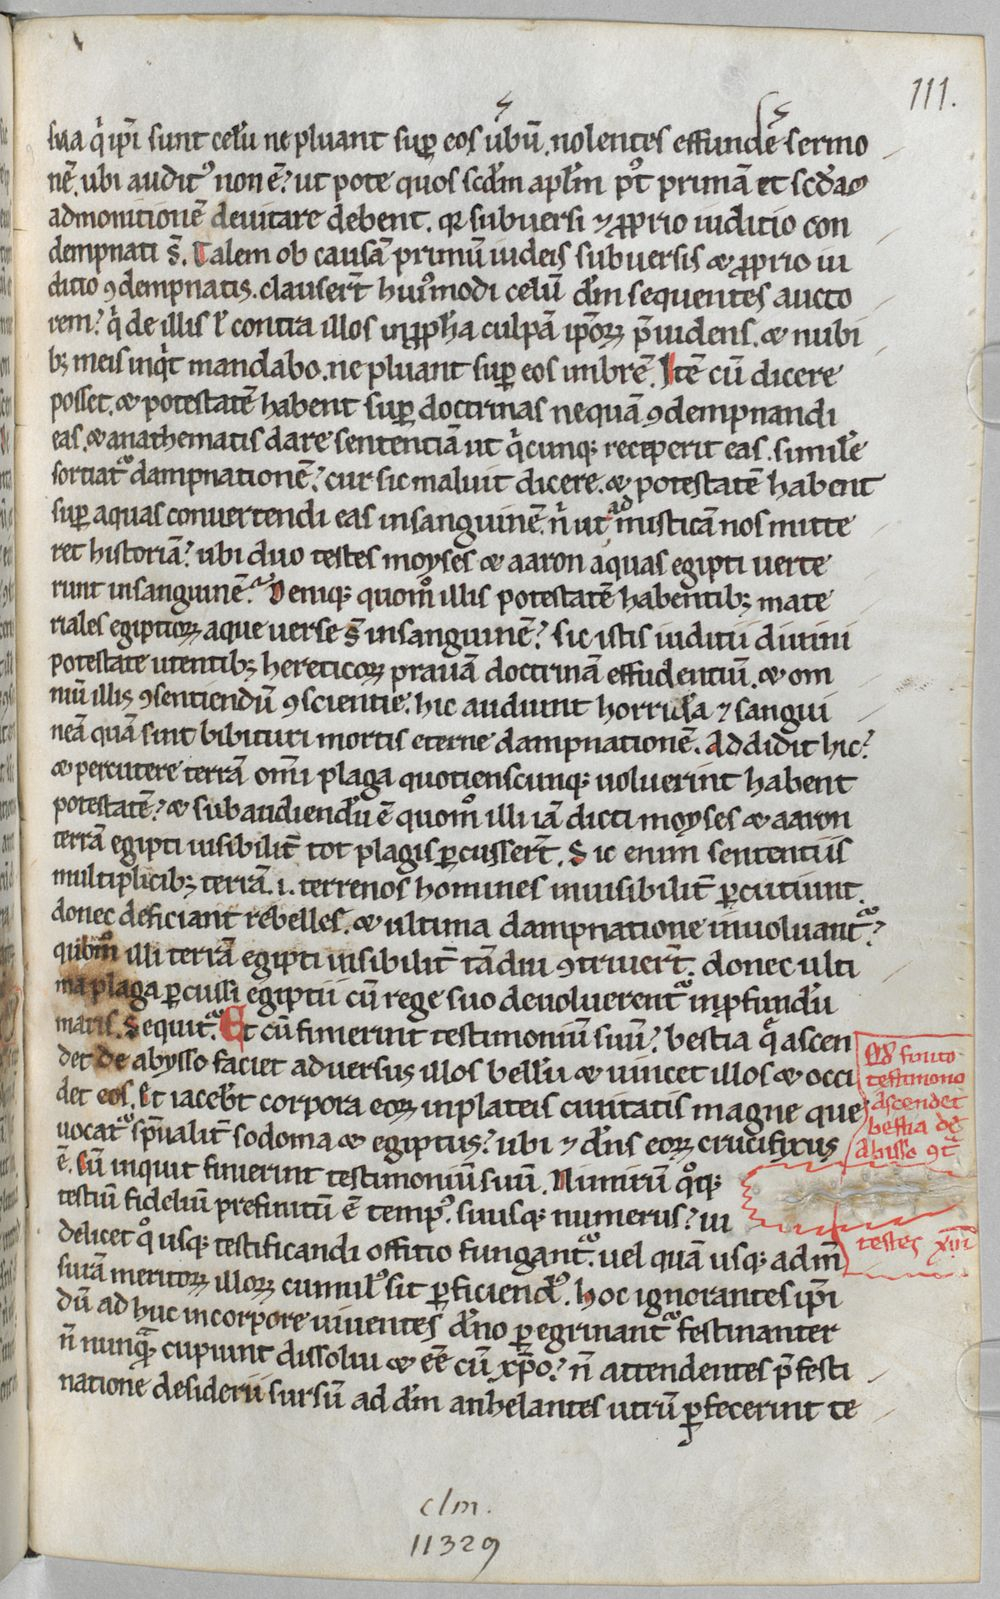 111.
sua q̇ ip̄i sunt celū ne pluant suꝑ eos ūbū. nolentes effundē sermo
nē. ubi auditꝰ non ē? ut pote quos scd̄m apl̄m pꝰt primā et scd̄ā
admonitionē deuitare debent. qꝛ subuersi ⁊ ꝓprio iuditio con
dempnati s̄. Talem ob causā primū iudeis subuersis & ꝓprio iu
ditio ꝯdempnatis. clauser̄t huiꝰmodi celū dn̄m sequentes aucto
rem? q̇ de illis ł contra illos in ꝓph̄a culpā ip̄oꝝ p̄uidens. & nubi
bꝫ meis inq̇t mandabo. ne pluant suꝑ eos imbrē. Itē cū dicere
posset. & potestatē habent suꝑ doctrinas nequā ꝯdempnandi
eas. & anathematis dare sententiā ut q̇cunqꝫ receperit eas. simile
sortiat᷑ dampnationē? cur sic maluit dicere. & potestatē habent
suꝑ aquas conuertendi eas in sanguinē. n̄ ut ad misticā nos mitte
ret historiā? ubi duo testes moyses & aaron aquas egipti uerte
runt in sanguinē. Deniqꝫ quom̊ illis potestatē habentibꝫ mate
riales egiptioꝝ aque uerse s̄ in sanguinē? sic istis iuditii diuini
potestate utentibꝫ hereticoꝝ prauā doctrinā effudentiū. & om
niū illis ꝯsentiendū ꝯscientie. hic audiunt horrida ⁊ sangui
neā quā sint bibituri mortis eterne dampnationē. Addidit hic?
& percutere terrā om̄i plaga quotienscunqꝫ uoluerint habent
potestatē? & subaudiendū ē quom̊ illi iā dicti moyses & aaron
terrā egipti uisibilit̄ tot plagis ꝑcusser̄t. Sic enim sententiis
multiplicibꝫ terrā .i. terrenos homines inuisibilit̄ ꝑcutiunt.
donec deficiant rebelles. & ultima dampnatione inuoluant᷑?
quom̊ illi terrā egipti uisibilit̄ tādiu ꝯtriuer̄t. donec ulti
ma plaga ꝑcussi egiptii cū rege suo deuoluerent᷑ in ꝓfundū
maris. Sequit᷑. Et cū finierint testimoniū suū? bestia q̄ ascen
det de abysso faciet aduersus illos bellū & uincet illos & occi
det eos. Et iaceb̄t corpora eoꝝ in plateis ciuitatis magne que
uocat᷑ sp̄ualit̄ sodoma & egiptus? ubi ⁊ dn̄s eoꝝ crucifixus
ē. Cū inquit finierint testimoniū suū. Nimirū qͦtqꝫ
testiū fideliū prefinitū ē tempꝰ. suusqꝫ numerus? ui
delicet qͦ usqꝫ testificandi offitio fungant᷑. uel quā usqꝫ ad m̄
surā meritoꝝ illoꝝ cumulꝰ sit ꝑficiendꝰ. hoc ignorantes ip̄i
dū adhuc in corpore uiuentes dn̄o ꝑegrinant᷑ festinanter
n̄ nunqͣ cupiunt dissolui & ēē cū xp̄o? n̄ attendentes p̄ festi
natione desiderii sursū ad dm̄ anhelantes utrū ꝑfecerint te
Qd̄ finito
testimonio
ascendet
bestia de
abisso ꝯt̄
testes XIIII
clm.
11329